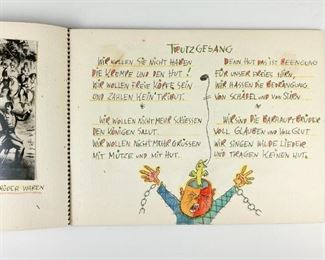 TRUTZGESANG
WIR WOLLEN SIE NICHT HABEN
DIE KREMPE UND DEN HUT!
WIR WOLLEN FREIE KÖPFE SEIN
UND ZAHLEN KEIN TRIBUT.
WIR WOLLEN NICHT MEHR SCHIESSEN
DEN KÖNIGEN SALUT.
WIR WOLLEN NICHT MEHR GRÜSSEN
MIT MÜTZE UND MIT HUT.
DENN HUT DAS IST BEENGUNG
FÜR UNSER FREIES HIRN,
WIR HASSEN DIE BEDRÄNGUNG
VON SCHÄDEL UND VON STIRN.
WIR SIND DIE BARHAUPT-BRÜDER
VOLL GLAUBEN UND VOLL GLUT
WIR SINGEN WILDE LIEDER
UND TRAGEN KEINEN HUT.
WAREN